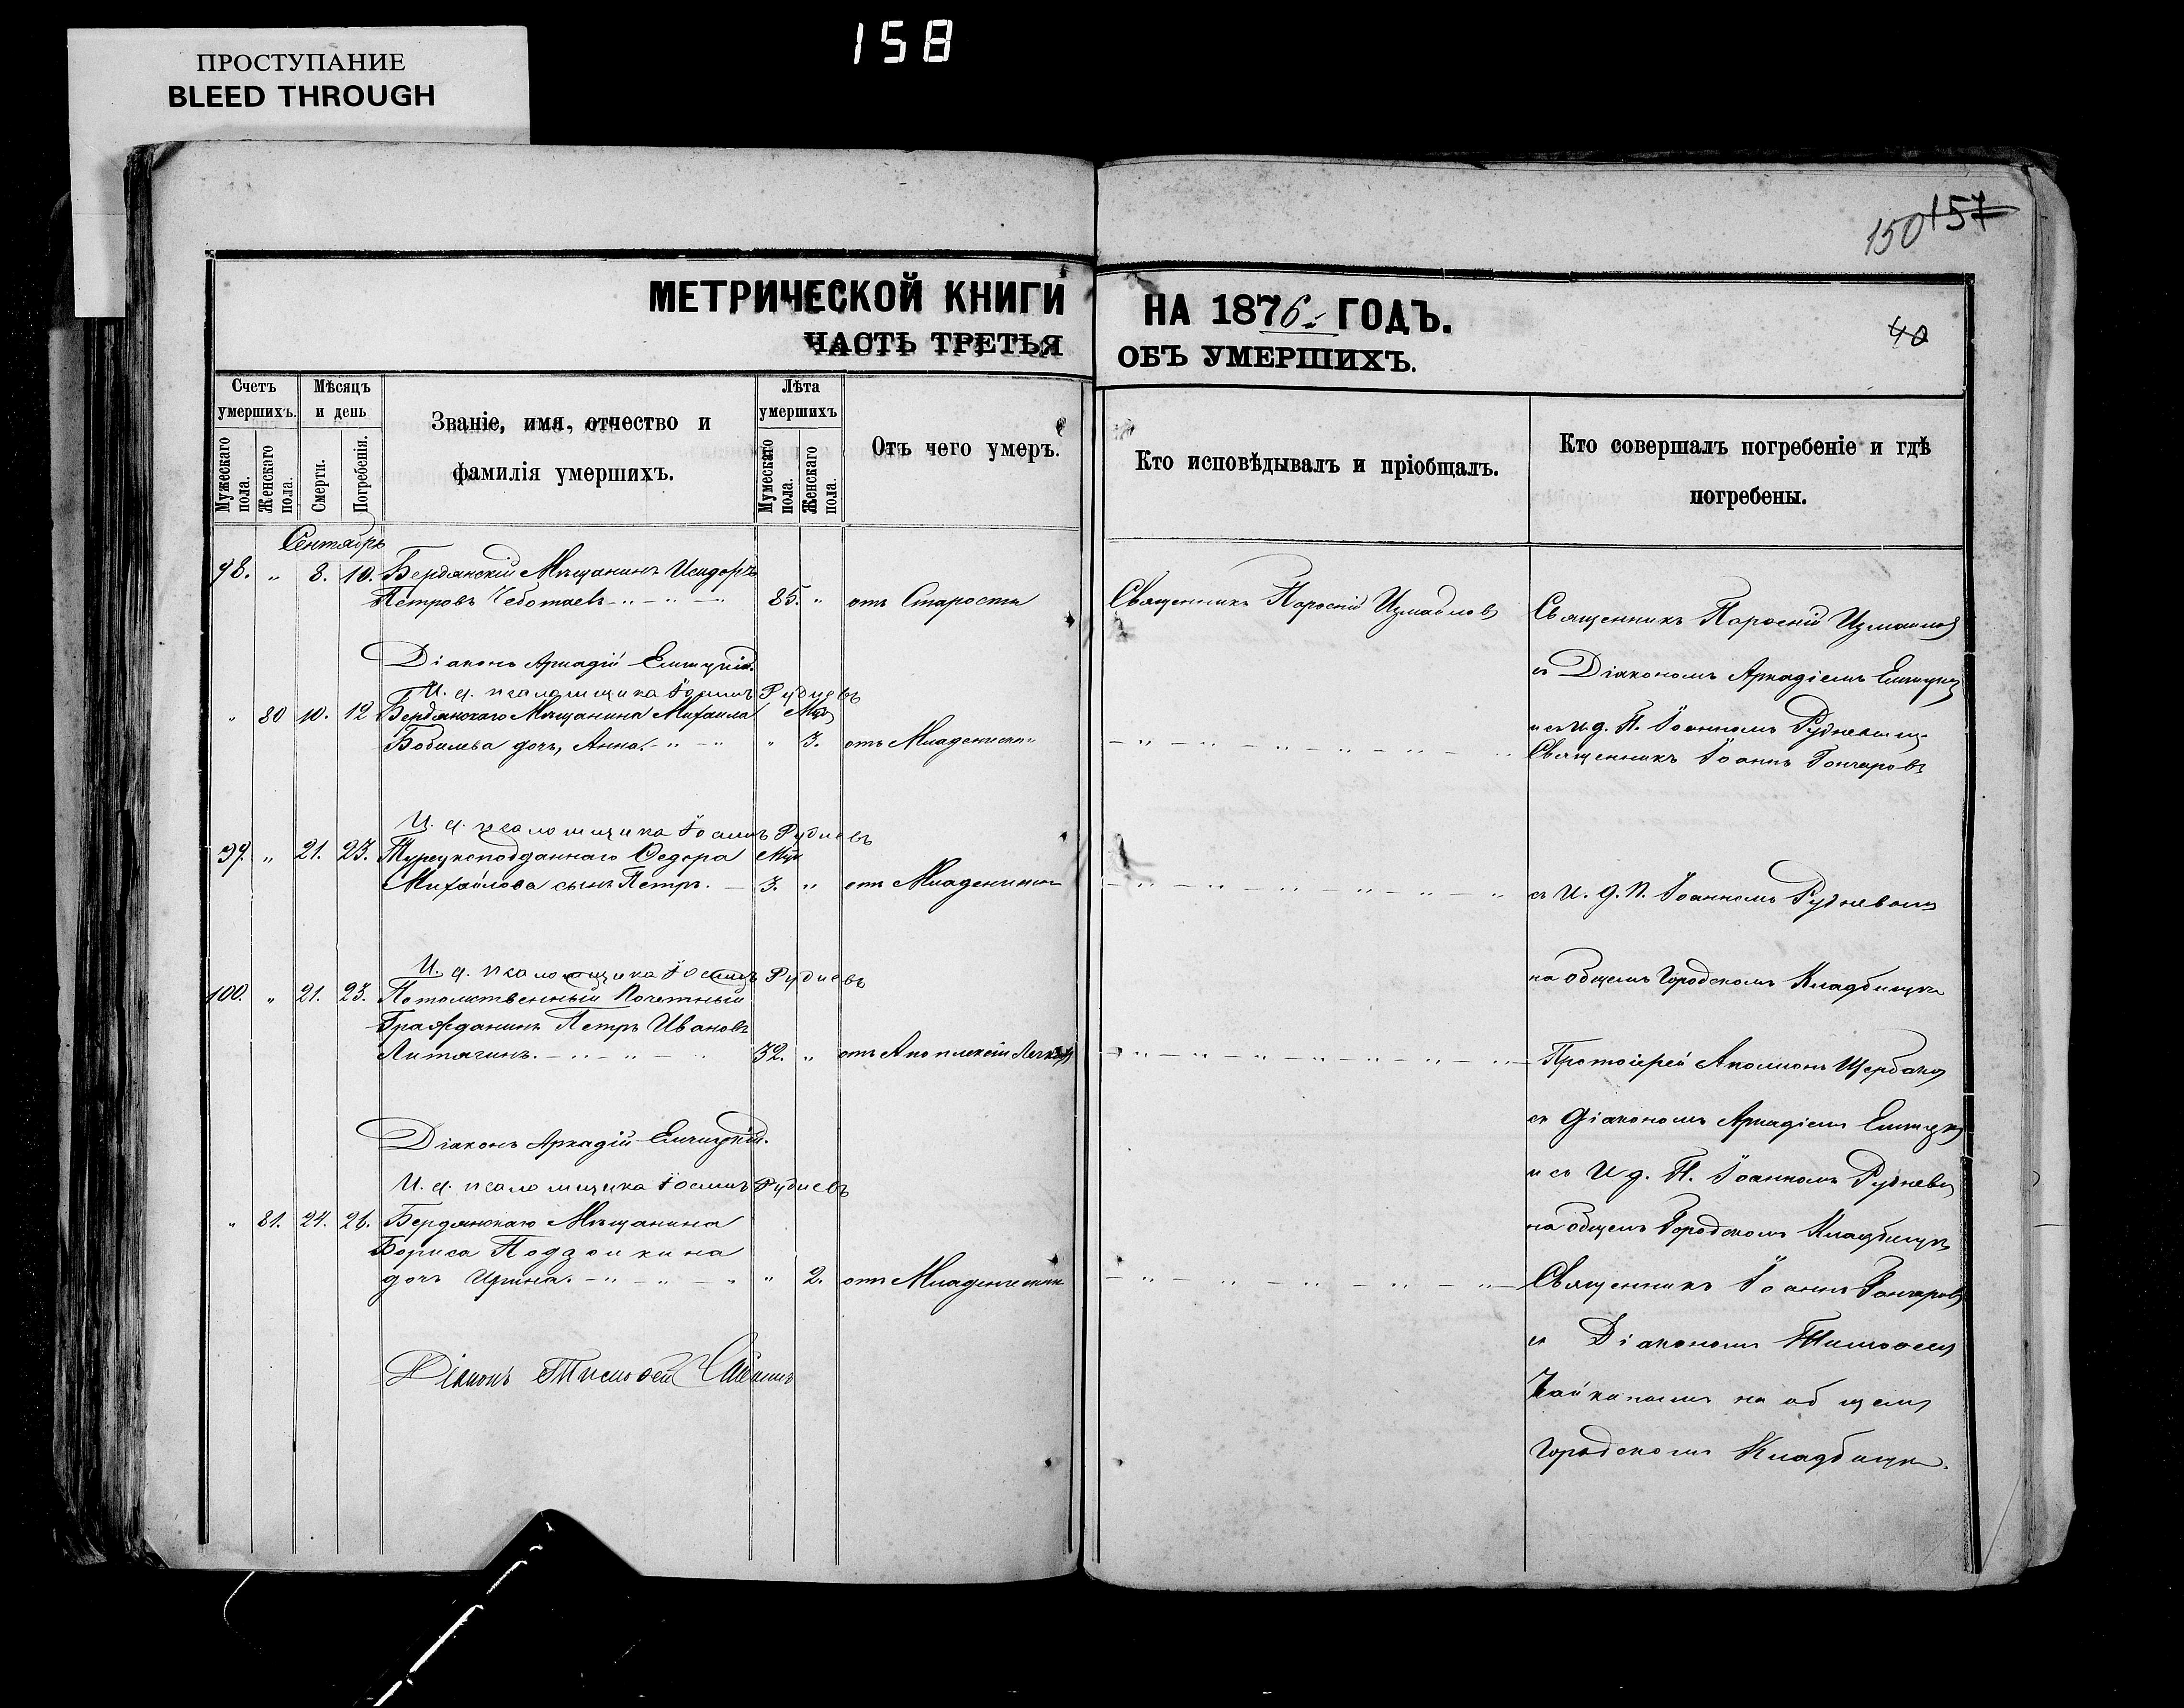 158
ПРОСТУПАНИЕ
BLEED THROUGH
150 157
МЕТРИЧЕСКОЙ КНИГИ НА 1876 ГОДЪ.
ЧАСТЬ ТРЕТЬЯ ОБЪ УМЕРШИХЪ.
40
Счетъ умершихъ.
Мужескаго пола.
Женскаго пола.
Мѣсяцъ и день
Смерти.
Погребенія.
Званіе, имя, отчество и фамилія умершихъ.
Лѣта умершихъ
Мужескаго пола.
Женскаго пола.
Отъ чего умеръ.
Кто исповѣдывалъ и пріобщалъ.
Кто совершалъ погребеніе и гдѣ погребены.
Сентябрь
98. " 8. 10. Бердянскій Мѣщанинъ Исидоръ
Петровъ Чеботаевъ 85. " отъ Старости
Священникъ
Діаконъ Аркадій
И. д. псаломщика Іоаннъ Рудневъ
" 80 10. 12 Бердянскаго Мѣщанина Михаила
дочь, Анна. " 3. отъ
И. д. псаломщика Іоаннъ Рудневъ
99. " 21. 23. Турецкоподданнаго Ѳедора
Михайлова сынъ Петръ. 3. " отъ
И. д. псаломщика Іоаннъ Рудневъ
100. " 21. 23. Потомственный Почетный
Гражданинъ Петръ Ивановъ
32. " отъ Апоплексіи
Діаконъ Аркадій
И. д. псаломщика Іоаннъ Рудневъ
" 81. 24. 26. Бердянскаго Мѣщанина
Бориса
дочь Ирина. " 2. отъ
Діаконъ Тимофей
Священникъ
съ Діакономъ Аркадіемъ
и съ И. д. П. Іоанномъ Рудневымъ
Священникъ Іоаннъ Гончаровъ
съ И. д. П. Іоанномъ Рудневымъ
на общемъ Городскомъ Кладбищѣ
Протоіерей
съ Діакономъ Аркадіемъ
и съ И. д. П. Іоанномъ Рудневымъ
на общемъ Городскомъ Кладбищѣ
Священникъ Іоаннъ Гончаровъ
съ Діакономъ
на общемъ
Городскомъ Кладбищѣ.